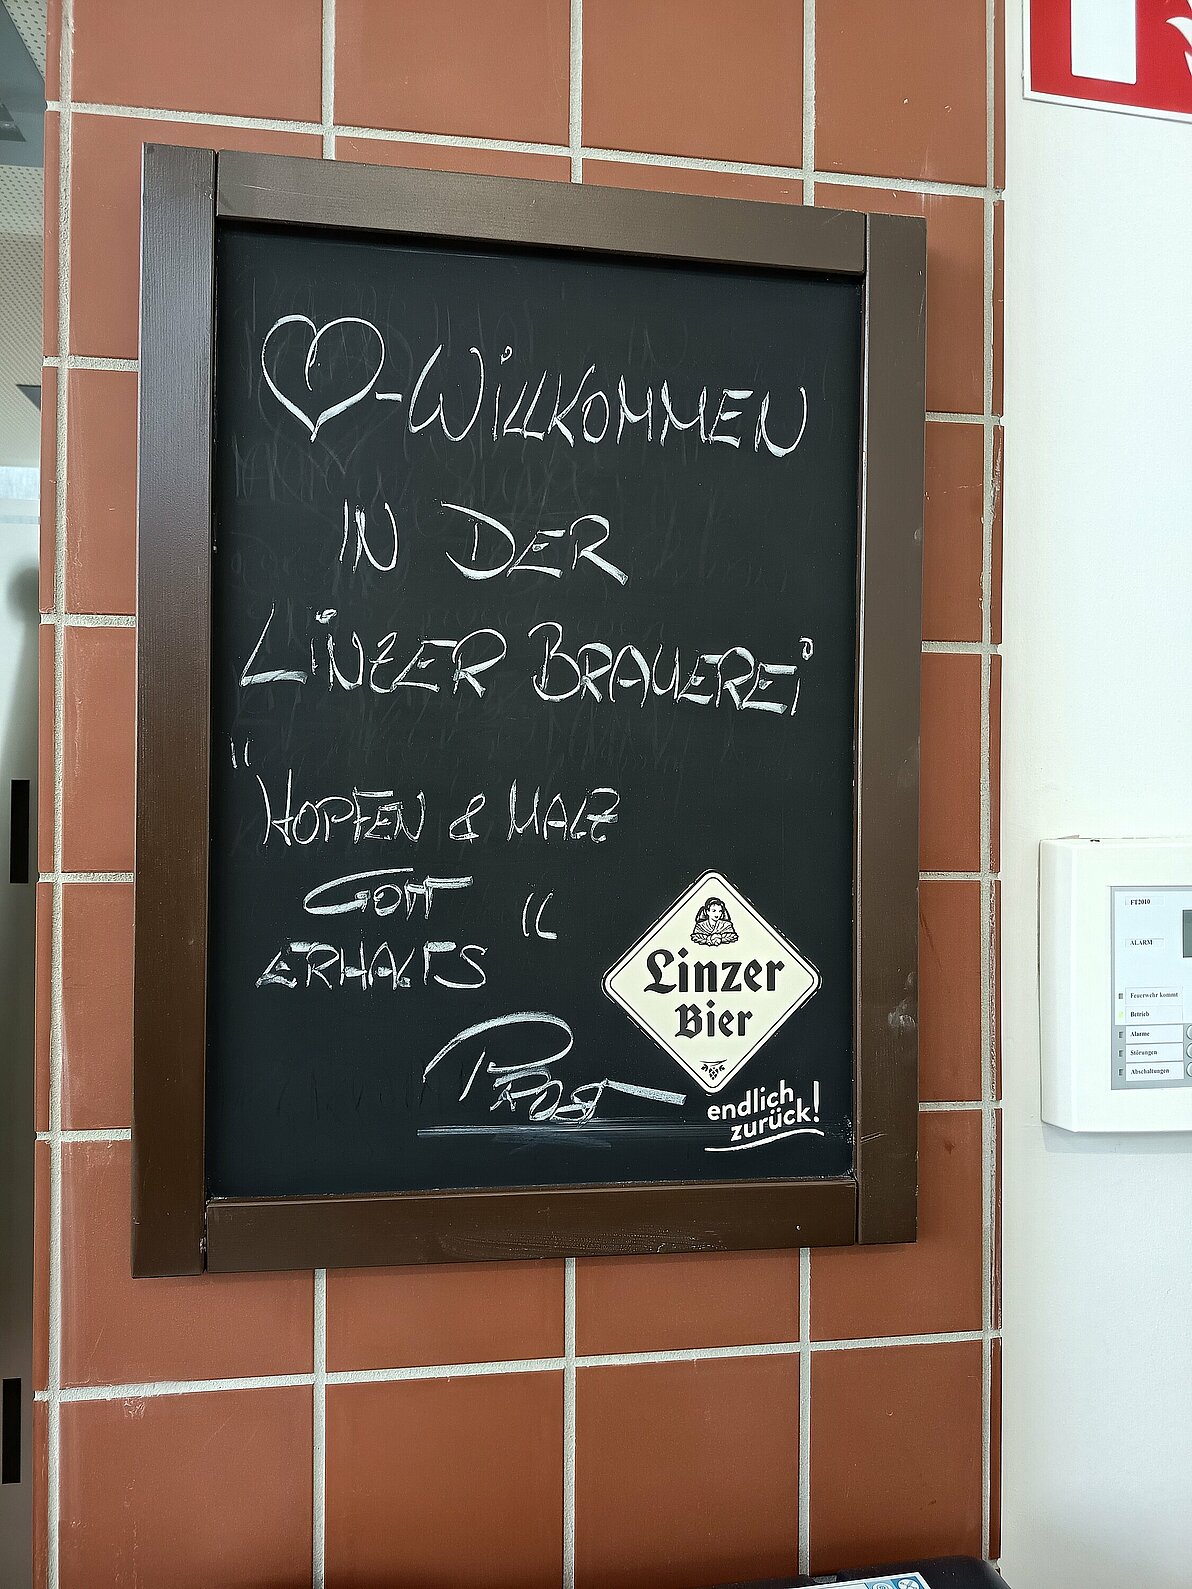 ♡-WILLKOMMEN
IN DER
LINZER BRAUEREI
"HOPFEN & MALZ
GOTT "
ERHALTS
PROST
Linzer
Bier
endlich
zurück!
FT2010
ALARM
Feuerwehr kommt
Betrieb
Alarme
Störungen
Abschaltungen